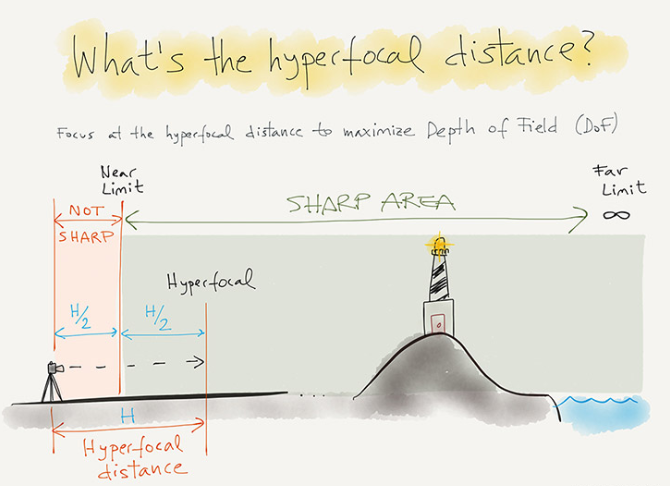 What's the hyperfocal distance?
Focus at the hyperfocal distance to maximize Depth of Field (DoF)
Near
Limit
Far
Limit
∞
NOT
SHARP
SHARP AREA
Hyperfocal
H/2
H/2
H
Hyperfocal
distance